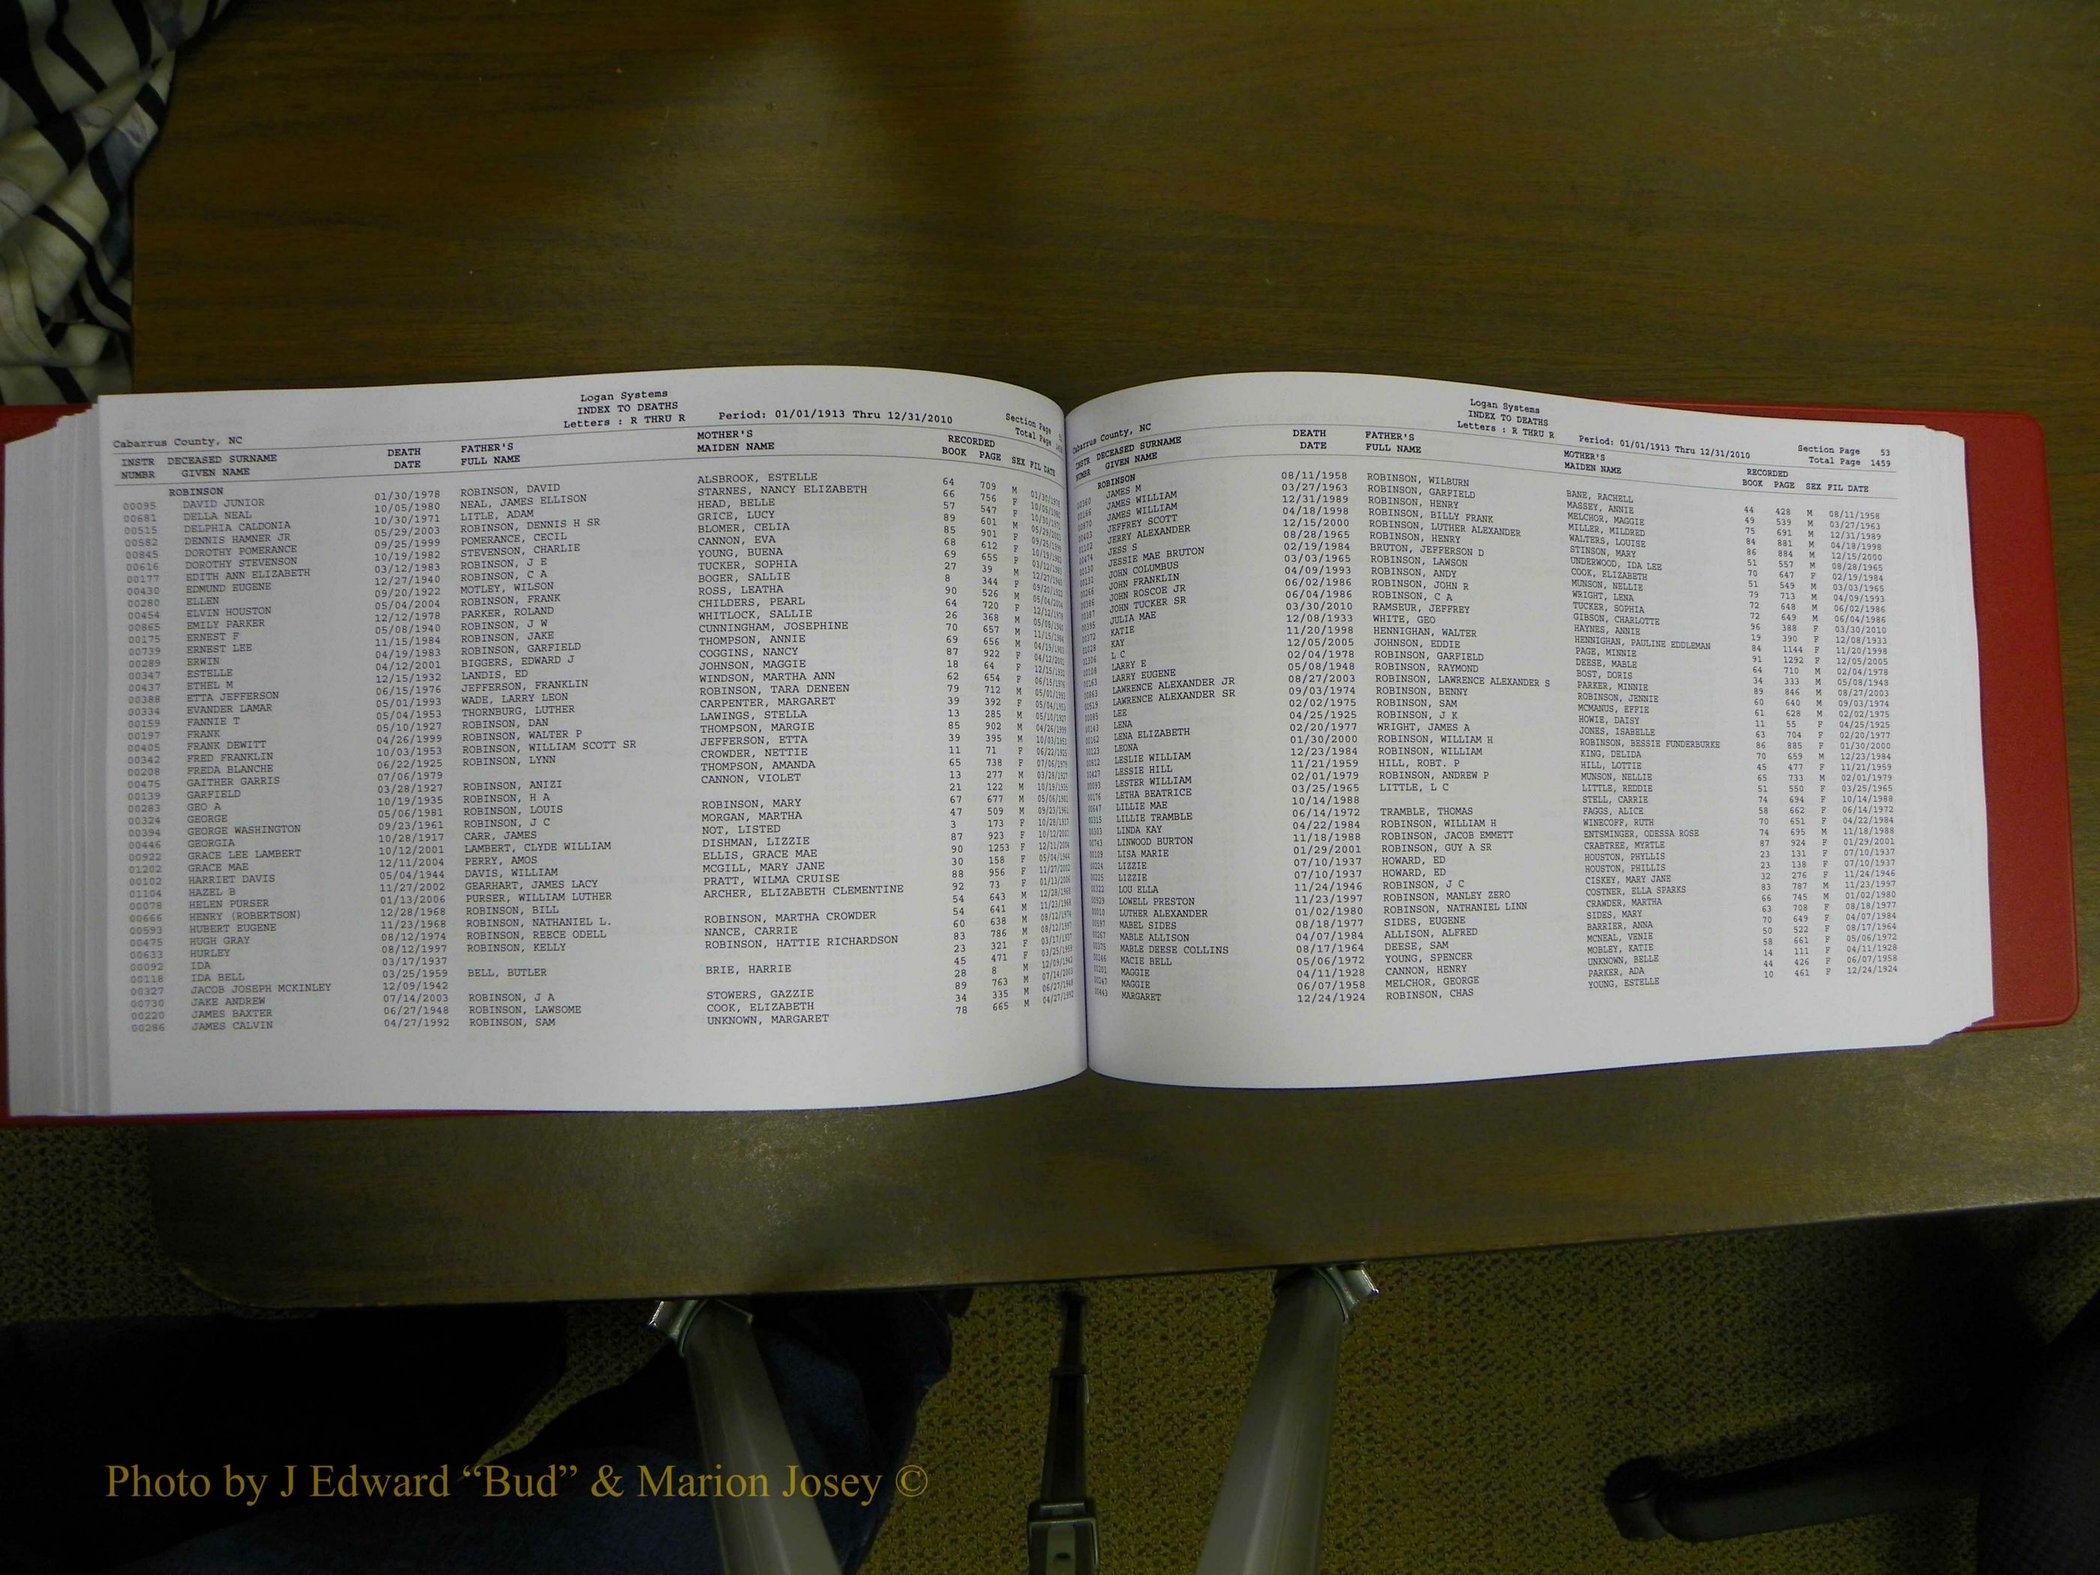 Logan Systems
INDEX TO DEATHS
Cabarrus County, NC Letters : R THRU R Period: 01/01/1913 Thru 12/31/2010 Section Page
Total Page
INSTR DECEASED SURNAME DEATH FATHER'S MOTHER'S RECORDED
NUMBR GIVEN NAME DATE FULL NAME MAIDEN NAME BOOK PAGE SEX FIL DATE
ROBINSON
00095 DAVID JUNIOR 01/30/1978 ROBINSON, DAVID ALSBROOK, ESTELLE 64 709 M
00681 DELLA NEAL 10/05/1980 NEAL, JAMES ELLISON STARNES, NANCY ELIZABETH 66 756 F
00515 DELPHIA CALDONIA 10/30/1971 LITLE, ADAM HEAD, BELLE 57 547 F
00582 DENNIS HAMNER JR 05/29/2003 ROBINSON, DENNIS H SR GRICE, LUCY 89 601 M
00845 DOROTHY POMERANCE 09/25/1999 POMERANCE, CECIL BLOMER, CELIA 85 901 F
00616 DOROTHY STEVENSON 10/19/1982 STEVENSON, CHARLIE CANNON, EVA 68 612 F
00177 EDITH ANN ELIZABETH 03/12/1983 ROBINSON, J E YOUNG, BUENA 69 655 F
00430 EDMUND EUGENE 12/27/1940 ROBINSON, C A TUCKER, SOPHIA 27 39 M
00280 ELLEN 09/20/1922 MOTLEY, WILSON BOGER, SALLIE 8 344 F
00454 ELVIN HOUSTON 05/04/2004 ROBINSON, FRANK ROSS, LEATHA 90 526 M
00865 EMILY PARKER 12/12/1978 PARKER, ROLAND CHILDERS, PEARL 64 720 F
00175 ERNEST F 05/08/1940 ROBINSON, J W WHITLOCK, SALLIE 26 368 M
00739 ERNEST LEE 11/15/1984 ROBINSON, JAKE CUNNINGHAM, JOSEPHINE 70 657 M
00289 ERWIN 04/19/1983 ROBINSON, GARFIELD THOMPSON, ANNIE 69 656 M
00347 ESTELLE 04/12/2001 BIGGERS, EDWARD J COGGINS, NANCY 87 922 F
00437 ETHEL M 12/15/1932 LANDIS, ED JOHNSON, MAGGIE 18 64 F
00388 ETTA JEFFERSON 06/15/1976 JEFFERSON, FRANKLIN WINDSON, MARTHA ANN 62 654 F
00334 EVANDER LAMAR 05/01/1993 WADE, LARRY LEON ROBINSON, TARA DENEEN 79 712 M
00159 FANNIE T 05/04/1953 THORNBURG, LUTHER CARPENTER, MARGARET 39 392 F
00197 FRANK 05/10/1927 ROBINSON, DAN LAWINGS, STELLA 13 285 M
00405 FRANK DEWITT 04/26/1999 ROBINSON, WALTER P THOMPSON, MARGIE 85 902 M
00342 FRED FRANKLIN 10/03/1953 ROBINSON, WILLIAM SCOTT SR JEFFERSON, ETTA 39 395 M
00208 FREDA BLANCHE 06/22/1925 ROBINSON, LYNN CROWDER, NETTIE 11 71 F
00475 GAITHER GARRIS 07/06/1979 THOMPSON, AMANDA 65 738 F
00139 GARFIELD 03/28/1927 ROBINSON, ANIZI CANNON, VIOLET 13 277 M
00283 GEO A 10/19/1935 ROBINSON, H A 21 122 M
00324 GEORGE 05/06/1981 ROBINSON, LOUIS ROBINSON, MARY 67 677 M
00394 GEORGE WASHINGTON 09/23/1961 ROBINSON, J C MORGAN, MARTHA 47 509 M
00446 GEORGIA 10/28/1917 CARR, JAMES NOT, LISTED 3 173 F
00922 GRACE LEE LAMBERT 10/12/2001 LAMBERT, CLYDE WILLIAM DISHMAN, LIZZIE 87 923 F
01202 GRACE MAE 12/11/2004 PERRY, AMOS ELLIS, GRACE MAE 90 1253 F
00102 HARRIET DAVIS 05/04/1944 DAVIS, WILLIAM MCGILL, MARY JANE 30 158 F
01104 HAZEL B 11/27/2002 GEARHART, JAMES LACY PRATT, WILMA CRUISE 88 956 F
00078 HELEN PURSER 01/13/2006 PURSER, WILLIAM LUTHER ARCHER, ELIZABETH CLEMENTINE 92 73 F
00666 HENRY (ROBERTSON) 12/28/1968 ROBINSON, BILL 54 643 M
00593 HUBERT EUGENE 11/23/1968 ROBINSON, NATHANIEL L. ROBINSON, MARTHA CROWDER 54 641 M
00475 HUGH GRAY 08/12/1974 ROBINSON, REECE ODELL NANCE, CARRIE 60 638 M
00633 HURLEY 08/12/1997 ROBINSON, KELLY ROBINSON, HATTIE RICHARDSON 83 786 M
00092 IDA 03/17/1937 23 321 F
00118 IDA BELL 03/25/1959 BELL, BUTLER BRIE, HARRIE 45 471 F
00327 JACOB JOSEPH MCKINLEY 12/09/1942 28 8 M
00730 JAKE ANDREW 07/14/2003 ROBINSON, J A STOWERS, GAZZIE 89 763 M
00220 JAMES BAXTER 06/27/1948 ROBINSON, LAWSOME COOK, ELIZABETH 34 335 M
00286 JAMES CALVIN 04/27/1992 ROBINSON, SAM UNKNOWN, MARGARET 78 665 M
Logan Systems
INDEX TO DEATHS
Cabarrus County, NC Letters : R THRU R Period: 01/01/1913 Thru 12/31/2010 Section Page 53
Total Page 1459
INSTR DECEASED SURNAME DEATH FATHER'S MOTHER'S RECORDED
NUMBR GIVEN NAME DATE FULL NAME MAIDEN NAME BOOK PAGE SEX FIL DATE
ROBINSON
JAMES M 08/11/1958 ROBINSON, WILBURN BANE, RACHELL 44 428 M 08/11/1958
JAMES WILLIAM 03/27/1963 ROBINSON, GARFIELD MASSEY, ANNIE 49 539 M 03/27/1963
JAMES WILLIAM 12/31/1989 ROBINSON, HENRY MELCHOR, MAGGIE 75 691 M 12/31/1989
JEFFREY SCOTT 04/18/1998 ROBINSON, BILLY FRANK MILLER, MILDRED 84 881 M 04/18/1998
JERRY ALEXANDER 12/15/2000 ROBINSON, LUTHER ALEXANDER WALTERS, LOUISE 86 884 M 12/15/2000
JESS S 08/28/1965 ROBINSON, HENRY STINSON, MARY 51 557 M 08/28/1965
JESSIE MAE BRUTON 02/19/1984 BRUTON, JEFFERSON D UNDERWOOD, IDA LEE 70 647 F 02/19/1984
JOHN COLUMBUS 03/03/1965 ROBINSON, LAWSON COOK, ELIZABETH 51 549 M 03/03/1965
JOHN FRANKLIN 04/09/1993 ROBINSON, ANDY MUNSON, NELLIE 79 713 M 04/09/1993
JOHN ROSCOE JR 06/02/1986 ROBINSON, JOHN R WRIGHT, LENA 72 648 M 06/02/1986
JOHN TUCKER SR 06/04/1986 ROBINSON, C A TUCKER, SOPHIA 72 649 M 06/04/1986
JULIA MAE 03/30/2010 RAMSEUR, JEFFREY GIBSON, CHARLOTTE 96 388 F 03/30/2010
KATIE 12/08/1933 WHITE, GEO HAYNES, ANNIE 19 390 F 12/08/1933
KAY 11/20/1998 HENNIGHAN, WALTER HENNIGHAN, PAULINE EDDLEMAN 84 1144 F 11/20/1998
L C 12/05/2005 JOHNSON, EDDIE PAGE, MINNIE 91 1292 F 12/05/2005
LARRY E 02/04/1978 ROBINSON, GARFIELD DEESE, MABLE 64 710 M 02/04/1978
LARRY EUGENE 05/08/1948 ROBINSON, RAYMOND BOST, DORIS 34 333 M 05/08/1948
LAWRENCE ALEXANDER JR 08/27/2003 ROBINSON, LAWRENCE ALEXANDER S PARKER, MINNIE 89 846 M 08/27/2003
LAWRENCE ALEXANDER SR 09/03/1974 ROBINSON, BENNY ROBINSON, JENNIE 60 640 M 09/03/1974
LEE 02/02/1975 ROBINSON, SAM MCMANUS, EFFIE 61 628 M 02/02/1975
LENA 04/25/1925 ROBINSON, J K HOWIE, DAISY 11 55 F 04/25/1925
LENA ELIZABETH 02/20/1977 WRIGHT, JAMES A JONES, ISABELLE 63 704 F 02/20/1977
LEONA 01/30/2000 ROBINSON, WILLIAM H ROBINSON, BESSIE FUNDERBURKE 86 885 F 01/30/2000
LESLIE WILLIAM 12/23/1984 ROBINSON, WILLIAM KING, DELIDA 70 659 M 12/23/1984
LESSIE HILL 11/21/1959 HILL, ROBT. P HILL, LOTTIE 45 477 F 11/21/1959
LESTER WILLIAM 02/01/1979 ROBINSON, ANDREW P MUNSON, NELLIE 65 733 M 02/01/1979
LETHA BEATRICE 03/25/1965 LITTLE, L C LITTLE, REDDIE 51 550 F 03/25/1965
LILLIE MAE 10/14/1988 STELL, CARRIE 74 694 F 10/14/1988
LILLIE TRAMBLE 06/14/1972 TRAMBLE, THOMAS FAGGS, ALICE 58 662 F 06/14/1972
LINDA KAY 04/22/1984 ROBINSON, WILLIAM H WINECOFF, RUTH 70 651 F 04/22/1984
LINWOOD BURTON 11/18/1988 ROBINSON, JACOB EMMETT ENTSMINGER, ODESSA ROSE 74 695 M 11/18/1988
LISA MARIE 01/29/2001 ROBINSON, GUY A SR CRABTREE, MYRTLE 87 924 F 01/29/2001
LIZZIE 07/10/1937 HOWARD, ED HOUSTON, PHYLLIS 23 131 F 07/10/1937
LIZZIE 07/10/1937 HOWARD, ED HOUSTON, PHILLIS 23 138 F 07/10/1937
LOU ELLA 11/24/1946 ROBINSON, J C CISKEY, MARY JANE 32 276 F 11/24/1946
LOWELL PRESTON 11/23/1997 ROBINSON, MANLEY ZERO COSTNER, ELLA SPARKS 83 787 M 11/23/1997
LUTHER ALEXANDER 01/02/1980 ROBINSON, NATHANIEL LINN CRAWDER, MARTHA 66 745 M 01/02/1980
MABEL SIDES 08/18/1977 SIDES, EUGENE SIDES, MARY 63 708 F 08/18/1977
MABLE ALLISON 04/07/1984 ALLISON, ALFRED BARRIER, ANNA 70 649 F 04/07/1984
MABLE DEESE COLLINS 08/17/1964 DEESE, SAM MCNEAL, VENIE 50 522 F 08/17/1964
MACIE BELL 05/06/1972 YOUNG, SPENCER MOBLEY, KATIE 58 661 F 05/06/1972
MAGGIE 04/11/1928 CANNON, HENRY UNKNOWN, BELLE 14 111 F 04/11/1928
MAGGIE 06/07/1958 MELCHOR, GEORGE PARKER, ADA 44 426 F 06/07/1958
MARGARET 12/24/1924 ROBINSON, CHAS YOUNG, ESTELLE 10 461 F 12/24/1924
Photo by J Edward “Bud” & Marion Josey ©